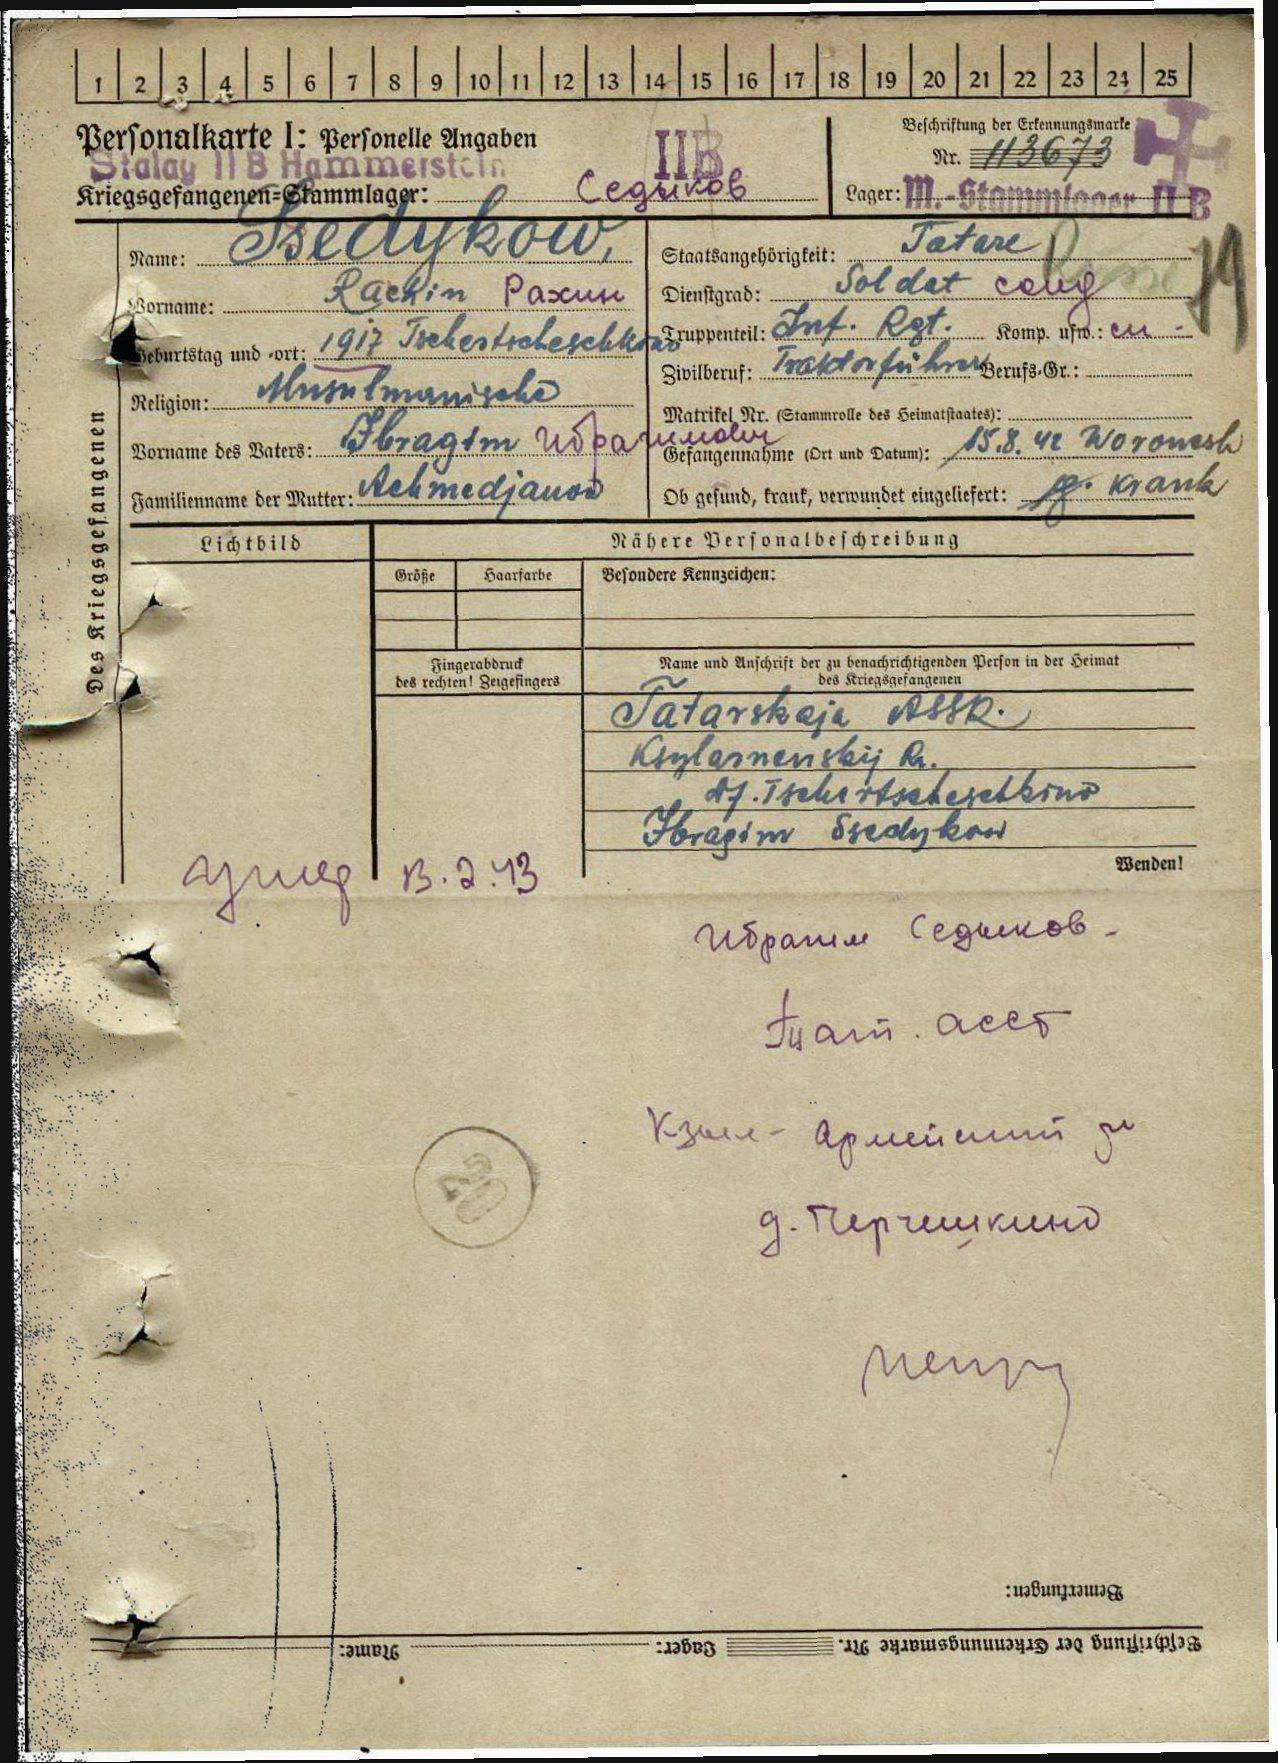 1 2 3 4 5 6 7 8 9 10 11 12 13 14 15 16 17 18 19 20 21 22 23 24 25
Personalkarte I: Personelle Angaben
Stalag II B Hammerstein
IIB
Kriegsgefangenen-Stammlager: Седыков
Beschriftung der Erkennungsmarke
Nr. 113673
Lager: M.-Stammlager II B
Des Kriegsgefangenen
Name: Ssedykow,
Vorname: Rachin Рахин
Geburtstag und -ort: 1917 Tschertscheschkino
Religion: Musulmanische
Vorname des Vaters: Ibragim Ибрагимович
Familienname der Mutter: Achmedjanow
Staatsangehörigkeit: Tatare
Dienstgrad: Soldat солд
Truppenteil: Inf. Rgt. Komp. usw.: сп -
Zivilberuf: Traktorführer Berufs-Gr.:
Matrikel Nr. (Stammrolle des Heimatstaates):
Gefangennahme (Ort und Datum): 15.8.42 Woronesh
Ob gesund, krank, verwundet eingeliefert: krank
Lichtbild
Nähere Personalbeschreibung
Größe Haarfarbe Besondere Kennzeichen:
Fingerabdruck
des rechten! Zeigefingers
Name und Anschrift der zu benachrichtigenden Person in der Heimat
des Kriegsgefangenen
Tatarskaja ASSR.
Ksylarmenskij R.
Tschertscheschkino
Ibragim Ssedykow
Wenden!
умер 13.2.43
Ибрагим Седыков -
Тат. АССР
Кзыл-Армейский
д. Черчешкино
20
Bemerkungen:
Beschriftung der Erkennungsmarke Nr. Lager: Name: